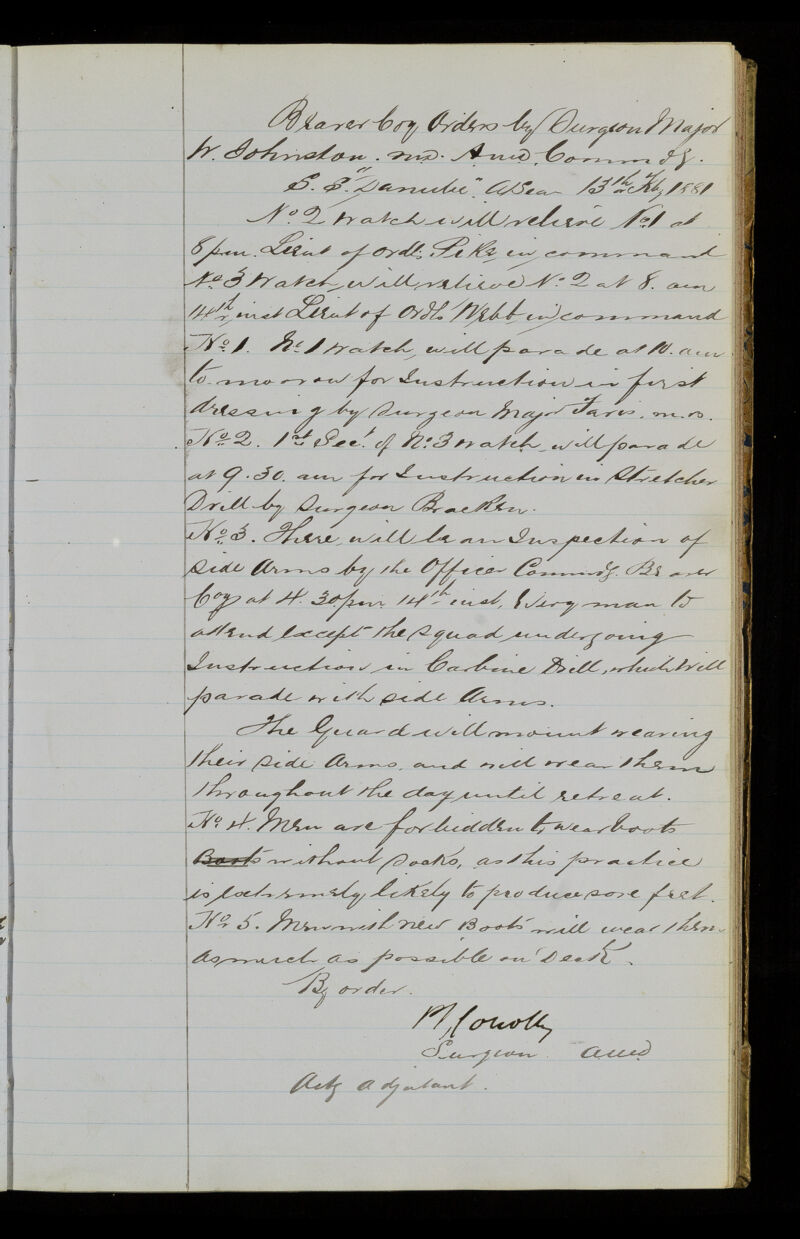 Bearer Coy Orders by Surgeon Major
W. Johnston. M.D. A.M.D. Commdg.
S. S. "Danube". At Sea 13th Feby 1881
No 2 Watch will relieve No 1 at
8 pm. Lieut of Ordls. Pike in command
No 3 Watch will relieve No 2 at 8. am
14th inst Lieut of Ordls Webb in command
No 1. No 1 Watch, will parade at 10. am
to-morrow for Instruction in first
dressing by Surgeon Major Faris. M.D.
No 2. 1st Sec. of No 3 Watch, will parade
at 9.30. am for Instruction in Stretcher
Drill by Surgeon Bracken.
No 3. There will be an Inspection of
Side Arms by the Officer Commdg. Bearer
Coy at 4. 30 pm 14th inst, Every man to
attend except the squad undergoing
Instruction in Carbine Drill, which will
parade with side Arms.
The Guard will mount wearing
their side Arms. and will wear them
throughout the day until retreat.
No 4. Men are forbidden to wear boots
Boots without socks, as this practice
is extremely likely to produce sore feet.
No 5. Men with new Boots will wear them
as much as possible on Deck.
By order.
M Conolly
Surgeon AMD
Actg Adjutant.